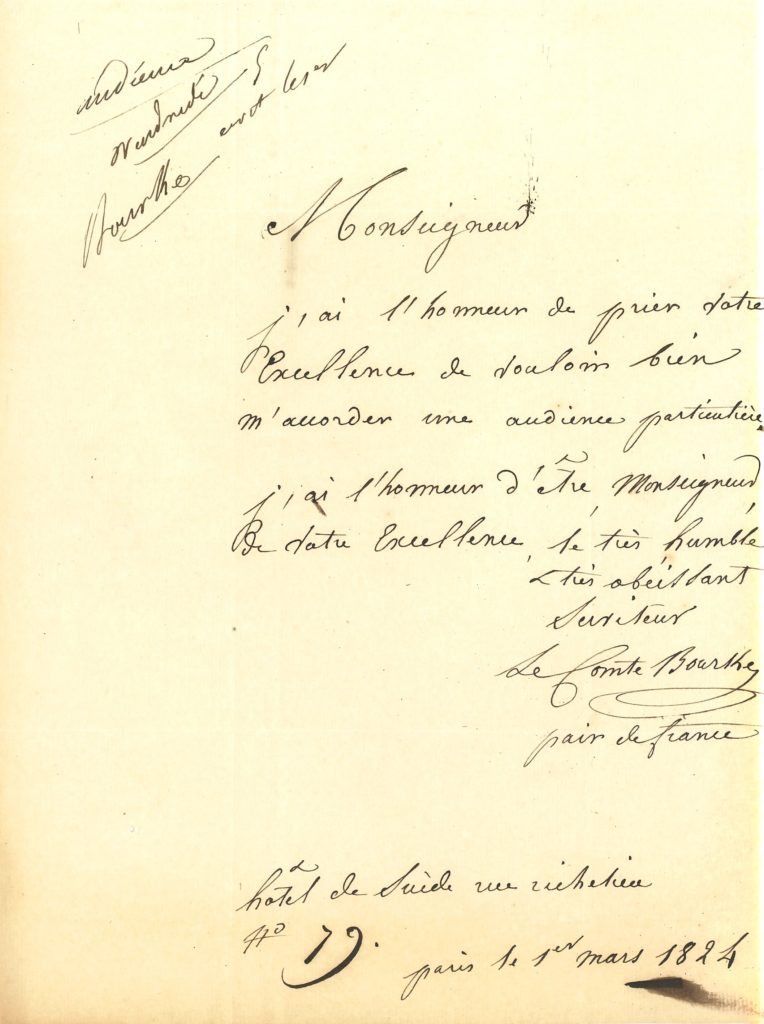 audience
vendredi 5
Bourke
Monseigneur
j, ai l'honneur de prier votre
Excellence de vouloir bien
m'accorder une audience particulière
j, ai l'honneur d'être Monseigneur
de votre Excellence le très humble
& très obéissant
Serviteur
Le Comte Bourke
pair de france
hôtel de Suède rue richelieu
No 79.
paris le 1er mars 1824